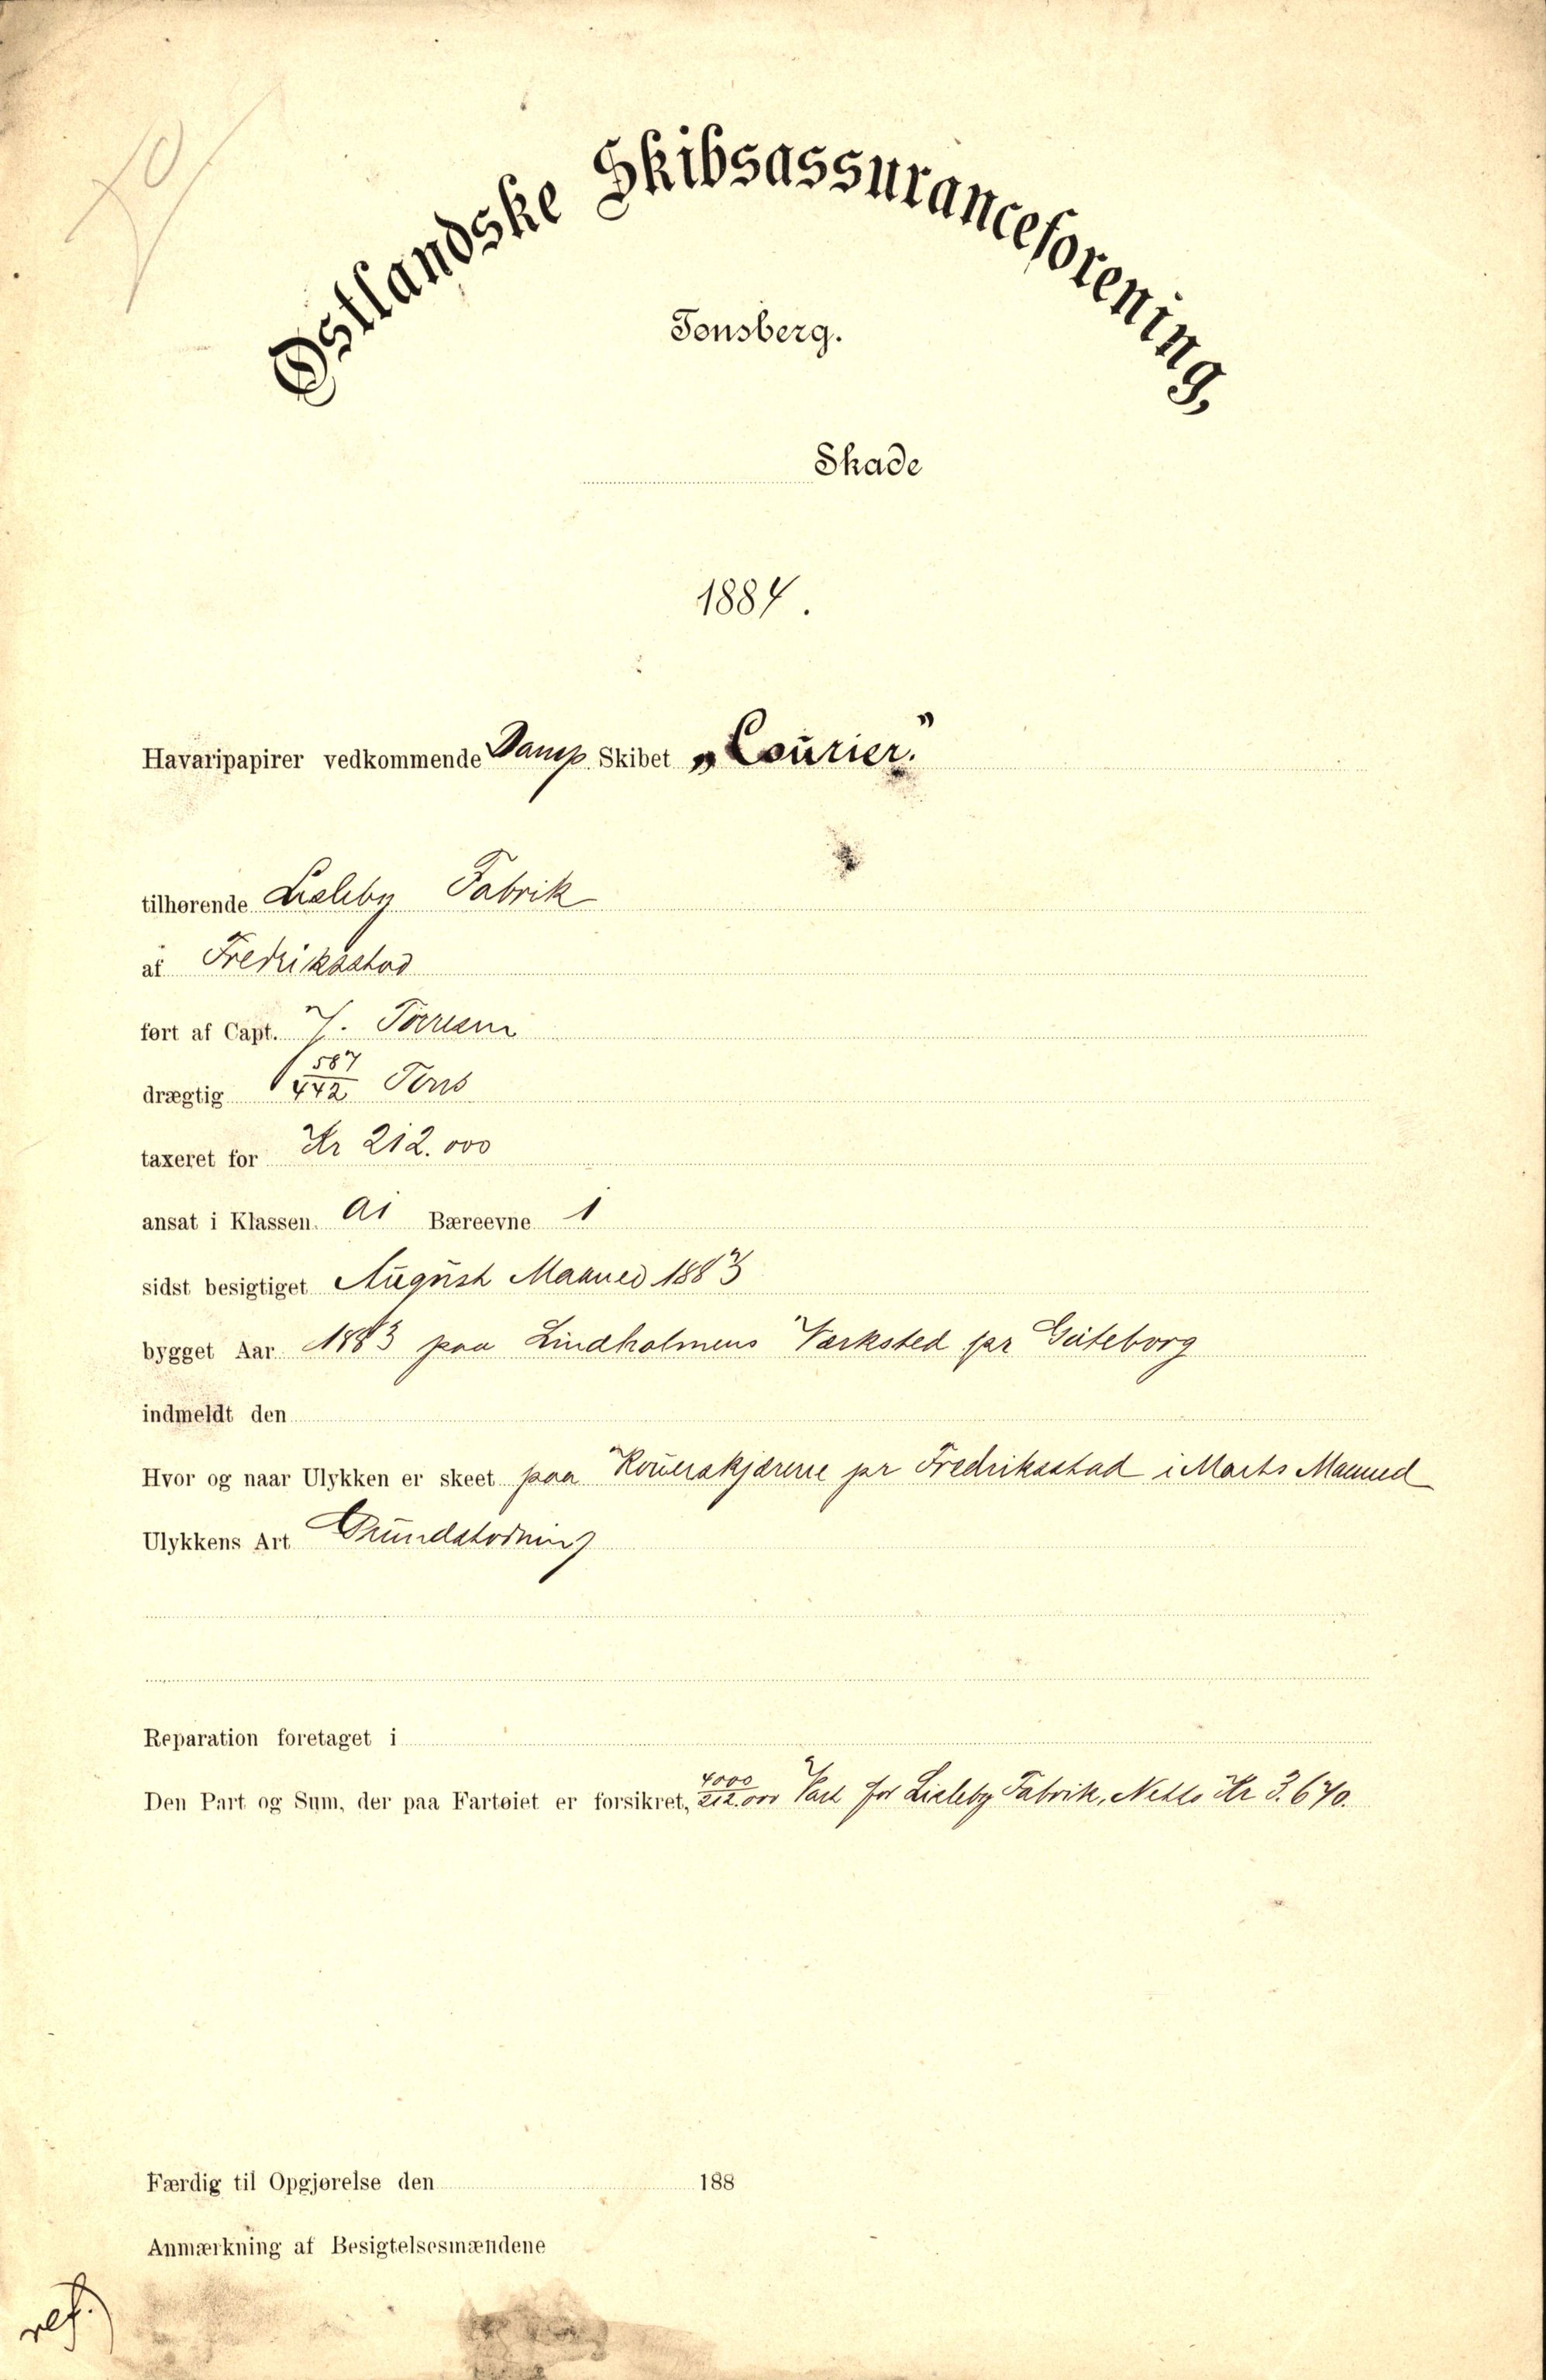 Østlandske Skibsassuranceforening,
Tønsberg.
Skade
1884.
Havaripapirer vedkommende Damp Skibet „Courier."
tilhørende Lisleby Fabrik
af Fredriksstad
ført af Capt. J. Torresen
drægtig 587/442 Tons
taxeret for Kr 212.000
ansat i Klassen A1 Bæreevne 1
sidst besigtiget August Maaned 1883
bygget Aar 1883 paa Lindholmens Værksted pr Göteborg
indmeldt den
Hvor og naar Ulykken er skeet paa Kouerskjærene pr Fredriksstad i Marts Maaned
Ulykkens Art Grundstødning
Reparation foretaget i
Den Part og Sum, der paa Fartøiet er forsikret, 4000/212.000 Part for Lisleby Fabrik, Netto Kr 3.640.
Færdig til Opgjørelse den 188
Anmærkning af Besigtelsesmændene
ref.)